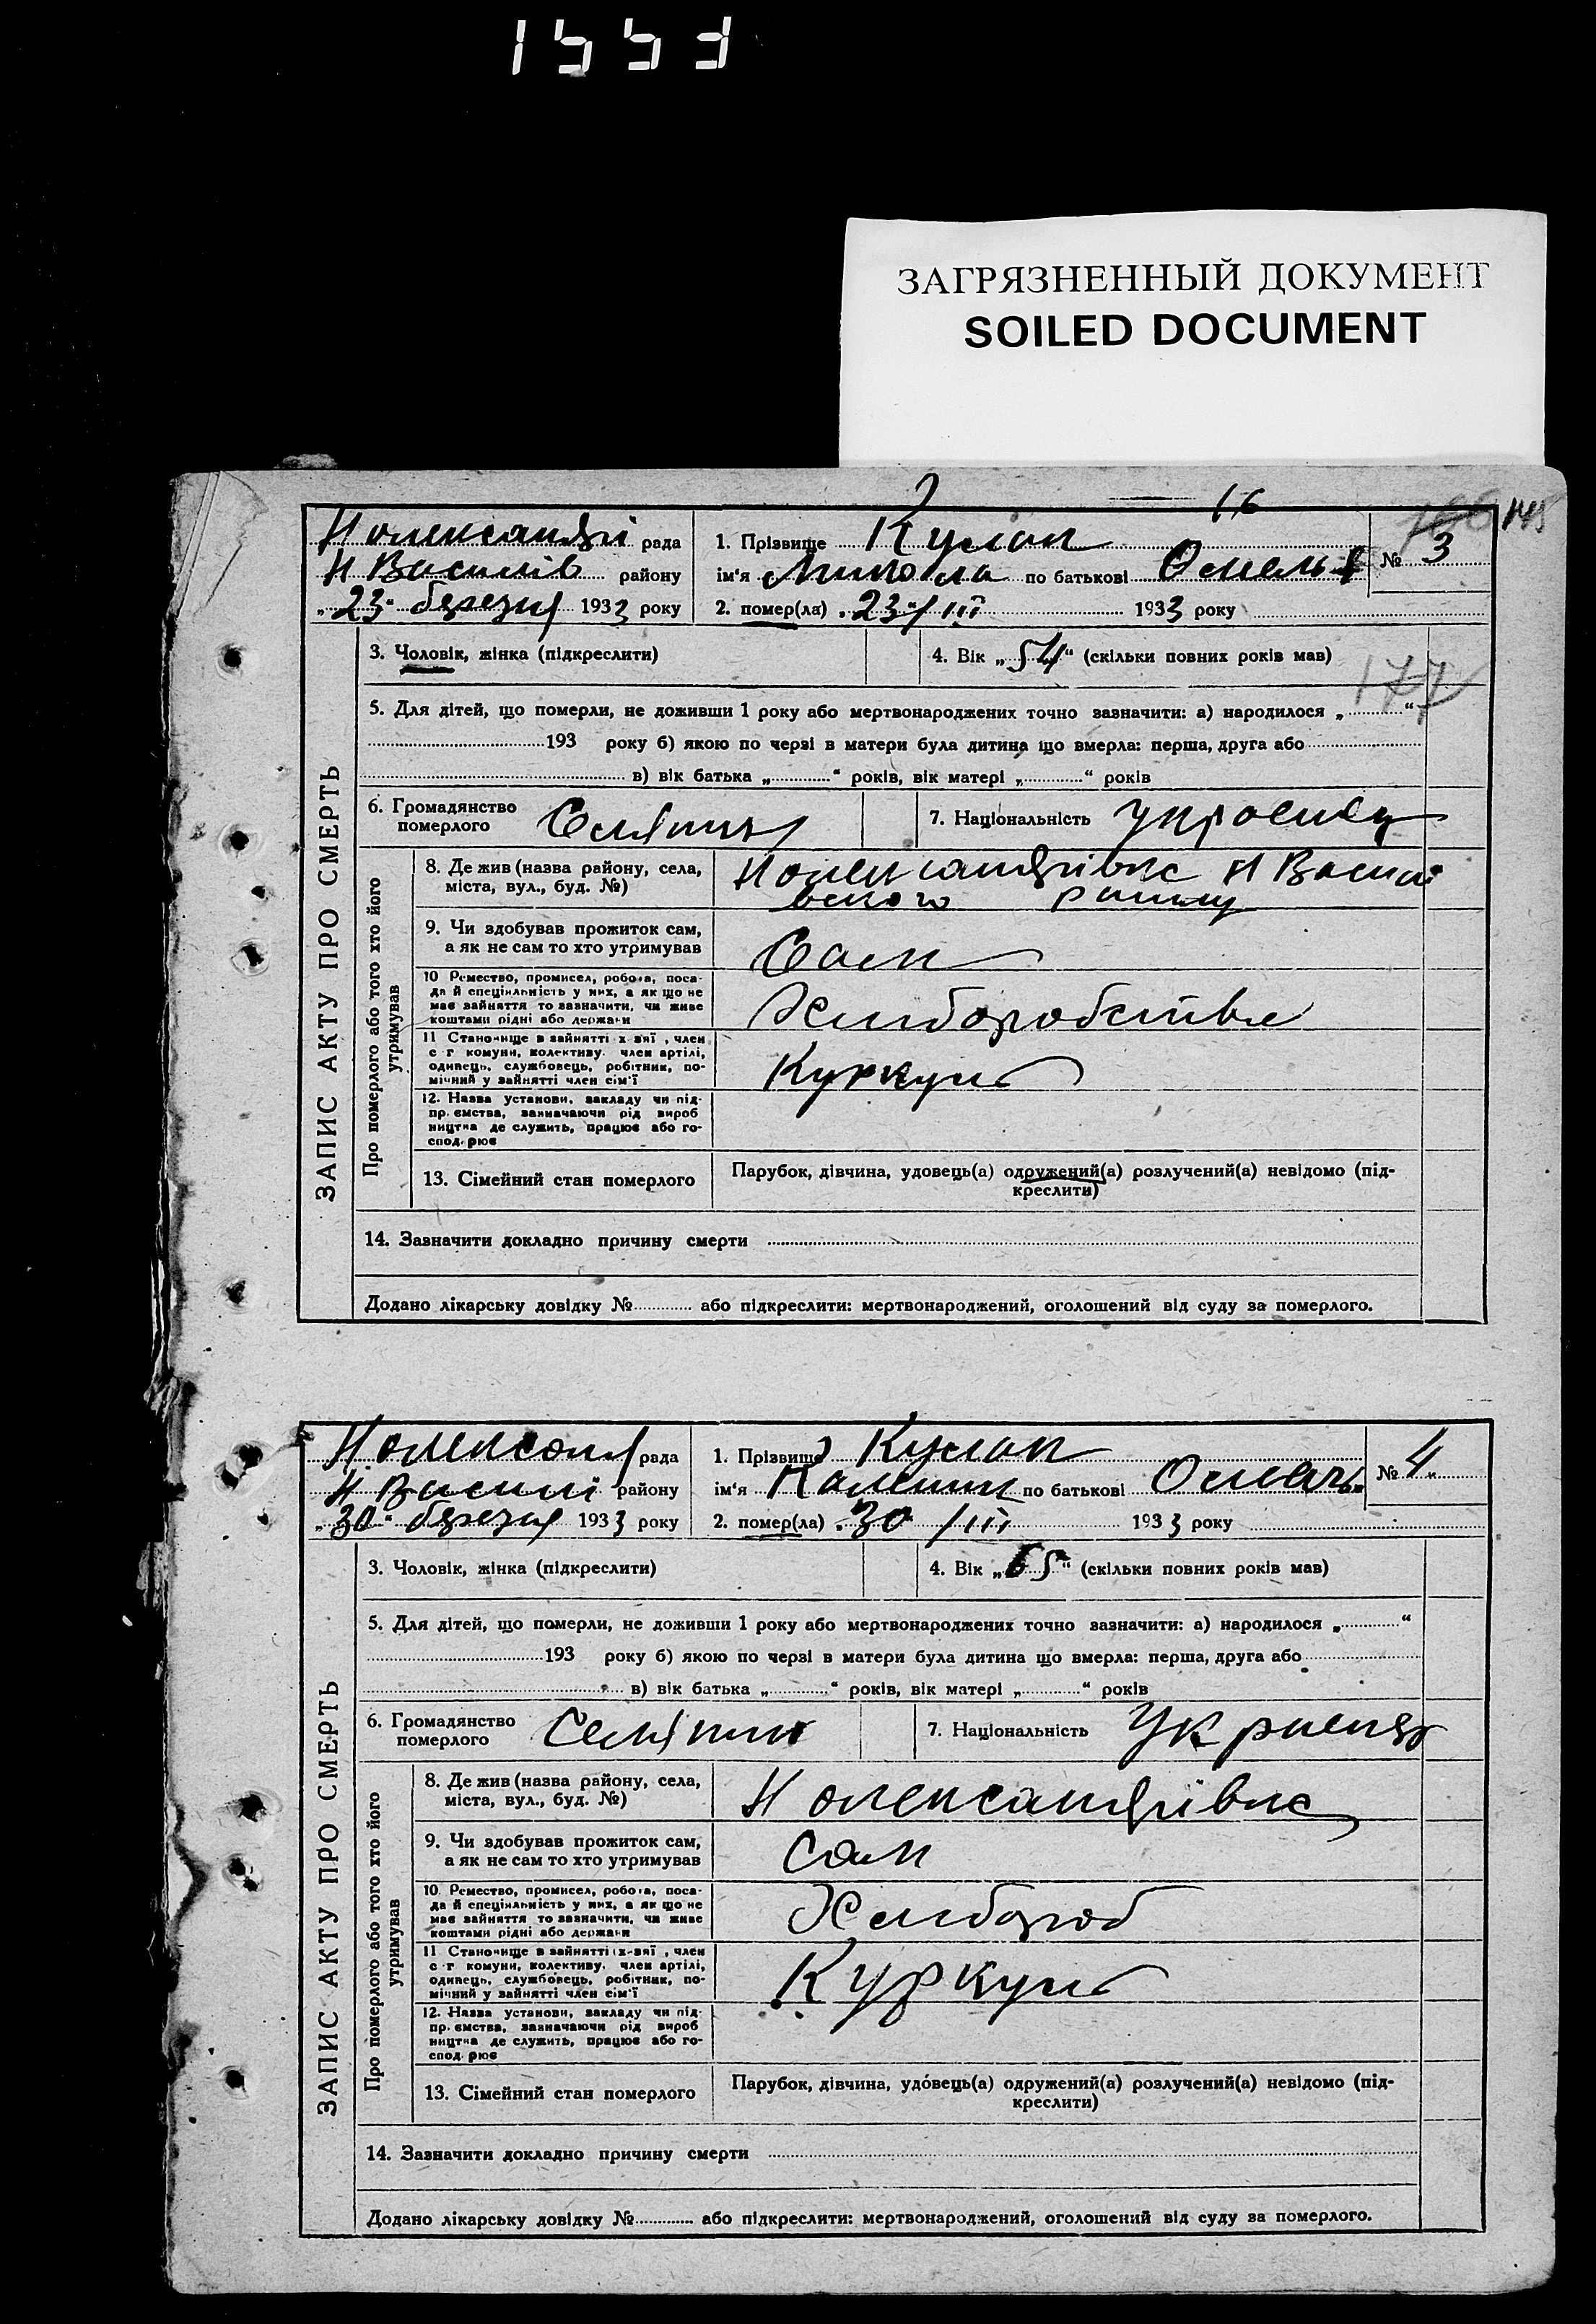 ЗАГРЯЗНЕННЫЙ ДОКУМЕНТ
SOILED DOCUMENT
16
145
Нолександрі рада
Н Василів району
„23" березня 1933 року
1. Прізвище Кулак
ім'я Микола по батькові Омельк
2. помер(ла) „23"/III 1933 року
№ 3
3. Чоловік, жінка (підкреслити)
4. Вік „54" (скільки повних років мав)
177
5. Для дітей, що померли, не доживши 1 року або мертвонароджених точно зазначити: а) народилося „ "
193 року б) якою по черзі в матери була дитина що вмерла: перша, друга або
в) вік батька „ " років, вік матері „ " років
6. Громадянство померлого Селянин
7. Національність Украєнец
ЗАПИС АКТУ ПРО СМЕРТЬ
Про померлого або того хто його утримував
8. Де жив (назва району, села,
міста, вул., буд. №)
Нолександрівке Н Васили
вского району
9. Чи здобував прожиток сам,
а як не сам то хто утримував
Сам
10 Ремество, промисел, робота, поса-
да й спеціяльність у них, а як що не
має зайняття то зазначити, чи живе
коштами рідні або держави
Хлиборобствм
11 Становище в зайнятті х-вяї, член
с г комуни, колективу. член артілі,
одинець, службовець, робітник, по-
мічний у зайнятті член сім'ї
Куркуль
12. Назва установи, закладу чи під-
пр. ємства, зазначаючи рід вироб
ництва де служить, працює або го-
спод. рює
13. Сімейний стан померлого
Парубок, дівчина, удовець(а) одружений(а) розлучений(а) невідомо (під-
креслити)
14. Зазначити докладно причину смерти
Додано лікарську довідку № або підкреслити: мертвонароджений, оголошений від суду за померлого.
Н.олексан рада
Н Васили району
„30" березня 1933 року
1. Прізвище Кулак
ім'я по батькові
2. помер(ла) „30 /III 1933 року
№ 4
3. Чоловік, жінка (підкреслити)
4. Вік „65" (скільки повних років мав)
5. Для дітей, що померли, не доживши 1 року або мертвонароджених точно зазначити: а) народилося „ "
193 року б) якою по черзі в матери була дитина що вмерла: перша, друга або
в) вік батька „ " років, вік матері „ " років
6. Громадянство померлого Селянин
7. Національність Украєнец
ЗАПИС АКТУ ПРО СМЕРТЬ
Про померлого або того хто його утримував
8. Де жив (назва району, села,
міста, вул., буд. №)
Нолександрівке
9. Чи здобував прожиток сам,
а як не сам то хто утримував
Сам
10 Ремество, промисел, робота, поса-
да й спеціяльність у них, а як що не
має зайняття то зазначити, чи живе
коштами рідні або держави
Хлибороб
11 Становище в зайнятті х-вяї, член
с г комуни, колективу. член артілі,
одинець, службовець, робітник, по-
мічний у зайнятті член сім'ї
Куркуль
12. Назва установи, закладу чи під-
пр. ємства, зазначаючи рід вироб
ництва де служить, працює або го-
спод. рює
13. Сімейний стан померлого
Парубок, дівчина, удовець(а) одружений(а) розлучений(а) невідомо (під-
креслити)
14. Зазначити докладно причину смерти
Додано лікарську довідку № або підкреслити: мертвонароджений, оголошений від суду за померлого.